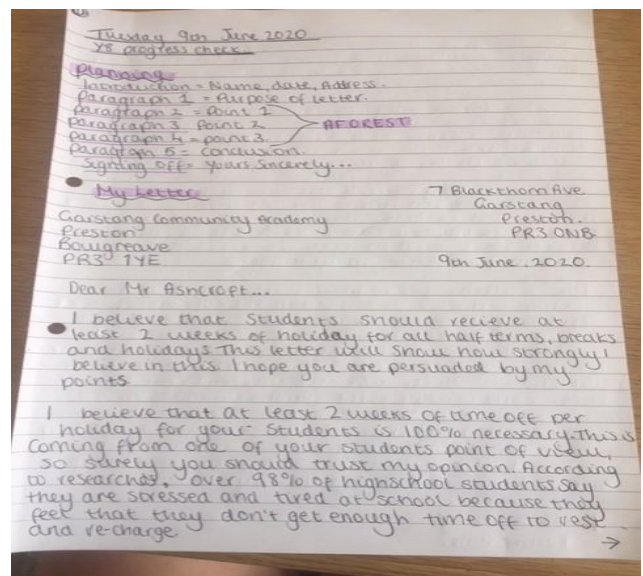 Tuesday 9th June 2020
Y8 progress check
Planning
Introduction = Name, date, Address.
Paragraph 1 = Purpose of letter.
Paragraph 2 = Point 1
Paragraph 3 Point 2
Paragraph 4 = point 3.
AFOREST
Paragraph 5 = Conclusion.
Signing off = Yours Sincerely...
My Letter
7 Blackthorn Ave
Garstang
Preston.
PR3 0NB
Garstang Community Academy
Preston
Bowgreave
PR3 1YE
9th June. 2020.
Dear Mr Ashcroft...
I believe that Students should recieve at
least 2 weeks of holiday for all half terms, breaks
and holidays. This letter will show how strongly I
believe in this. I hope you are persuaded by my
points.
I believe that at least 2 weeks of time off per
holiday for your students is 100% necessary. This is
coming from one of your students point of view,
so surely you should trust my opinion. According
to researchers, over 98% of highschool students say
they are stressed and tired at school because they
feel that they don't get enough time off to rest
and re-charge
→